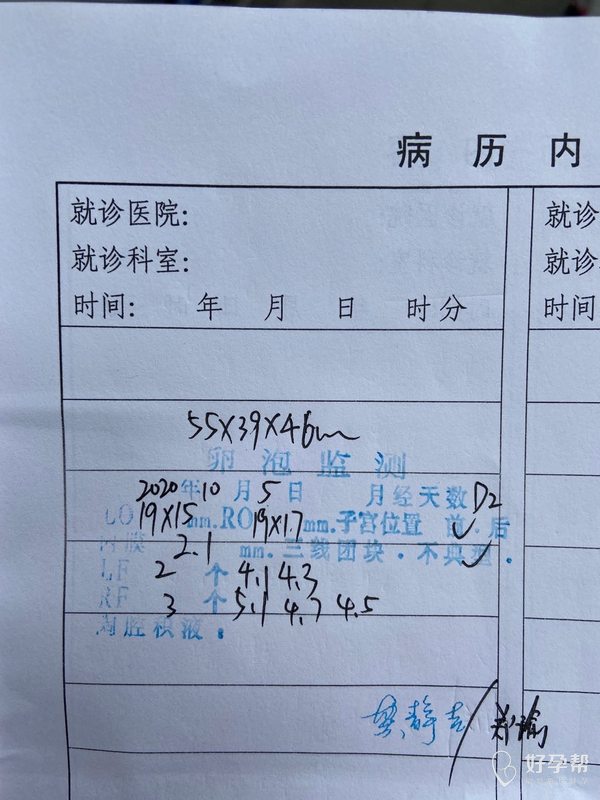 病 历 内
就诊医院:
就诊科室:
时间: 年 月 日 时 分
就诊
就诊
时间
55X39X46mm
卵泡监测
2020年10月5日 月经天数 D2
LO 19X15 mm. RO 19X1.7 mm. 子宫位置 前. 后
内膜 2.1 mm. 三线团块. 不典型.
LF 2 个 4.1 4.3
RF 3 个 5.1 4.7 4.5
腔积液:
郑瑜
好孕帮